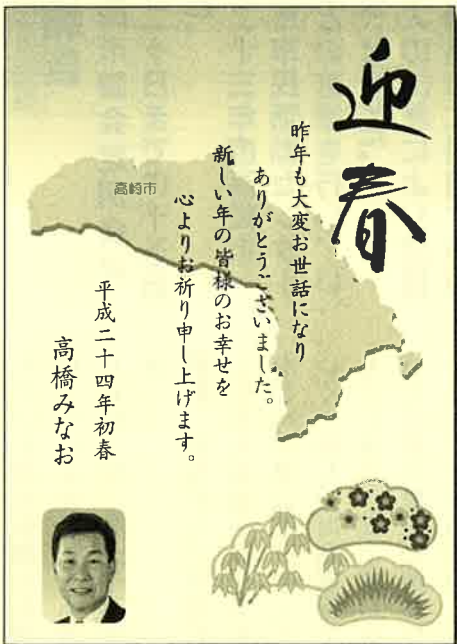 迎春
昨年も大変お世話になり
ありがとうございました。
新しい年の皆様のお幸せを
心よりお祈り申し上げます。
平成二十四年初春
高橋みなお
高崎市